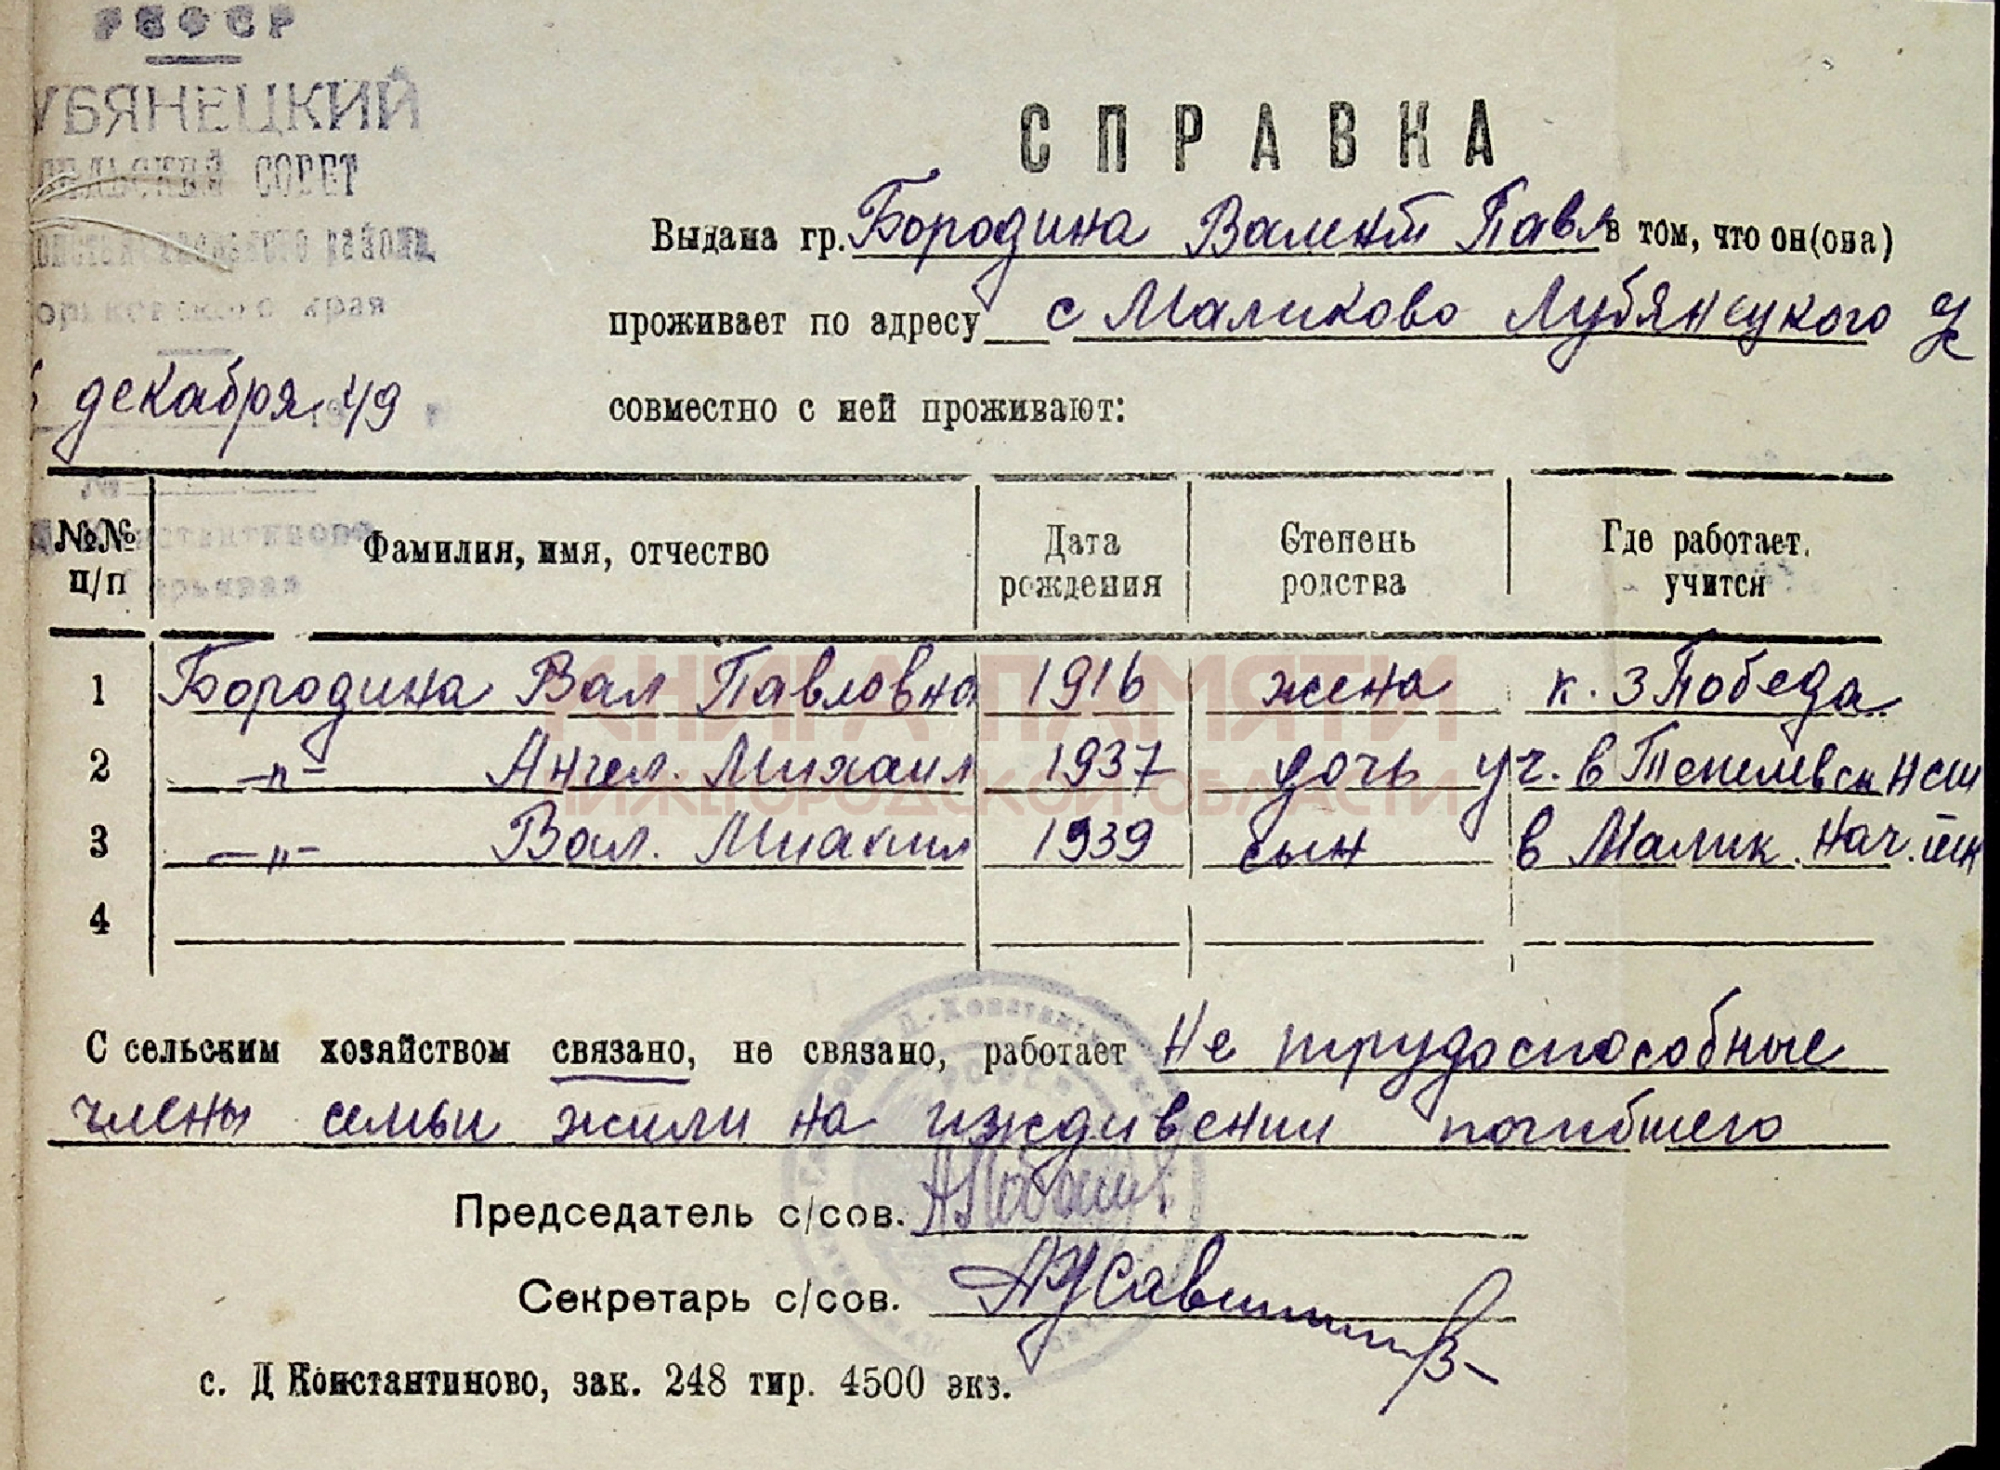 РСФСР
УБЯНЕЦКИЙ
ЕЛЬСКИЙ СОВЕТ
района
орьковского края
декабря 49
№
СПРАВКА
Выдана гр. Бородина Валент Павл в том, что он(она)
проживает по адресу с Маликово Лубянецкого
совместно с ней проживают:
№№ п/п Фамилия, имя, отчество Дата рождения Степень родства Где работает, учится
1 Бородина Вал Павловна 1916 жена к. з Победа
2 —„— Ангел. Михаил 1937 дочь уч. в нсш
3 —„— Вал. 1939 сын в Малик. нач. шк
4
КНИГА ПАМЯТИ
НИЖЕГОРОДСКОЙ ОБЛАСТИ
С сельским хозяйством связано, не связано, работает Не трудоспособные
члены семьи жили на иждивении погибшего
Председатель с/сов.
Секретарь с/сов.
с. Д Константиново, зак. 248 тир. 4500 экз.